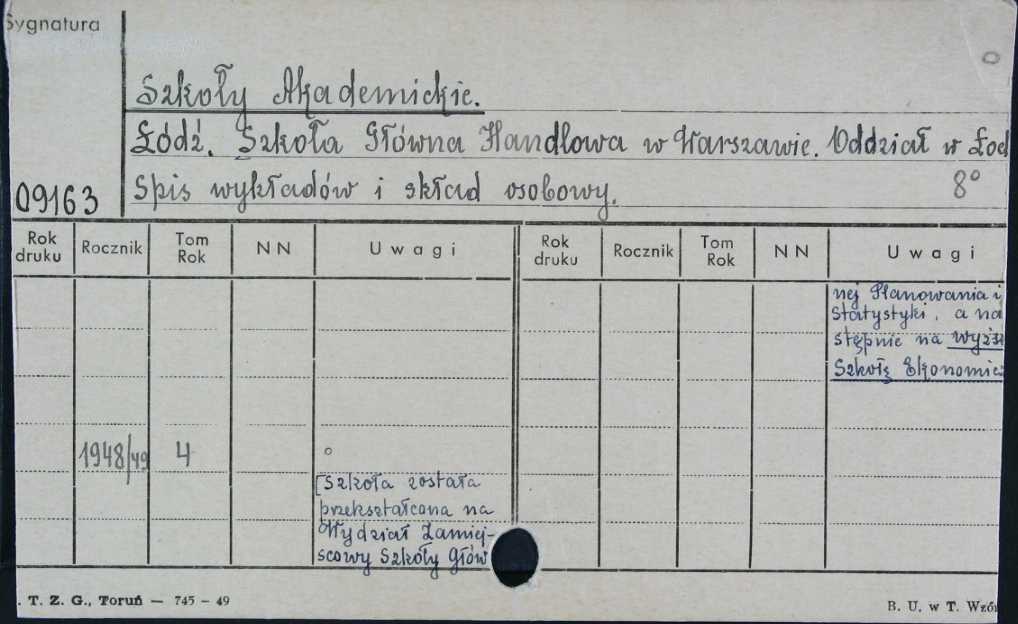 Sygnatura
Szkoły Akademickie.
Łódź. Szkoła Główna Handlowa w Warszawie. Oddział w Łod
09163 Spis wykładów i skład osobowy. 8°
Rok druku Rocznik Tom Rok NN Uwagi Rok druku Rocznik Tom Rok NN Uwagi
nej Planowania i
Statystyki, a na
stępnie na Wyższ
Szkołę Ekonomicz
1948/49 4 °
[Szkoła została
przekształcona na
Wydział Zamiej-
scowy Szkoły Głów
. T. Z. G., Toruń — 745 – 49
B. U. w T. Wzór